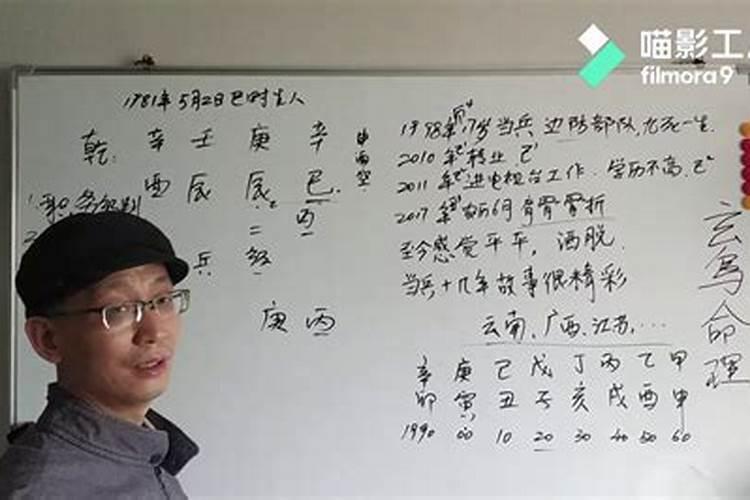 喵影工
filmora9
1981年5月2日巳时生人
乾: 辛 壬 庚 辛
酉 辰 辰 巳
申酉空
二 丙
兵
庚 丙
1998年17岁当兵 边防部队,九死一生.
2010年转业
2011年进电视台工作. 学历不高.
2017年6月脊骨骨折
至今感觉平平, 洒脱.
当兵十几年故事很精彩
云南、广西、江苏、...
辛 庚 己 戊 丁 丙 乙 甲
卯 寅 丑 子 亥 戌 酉 申
1990 00 10 20 30 40 50 60
玄写命理